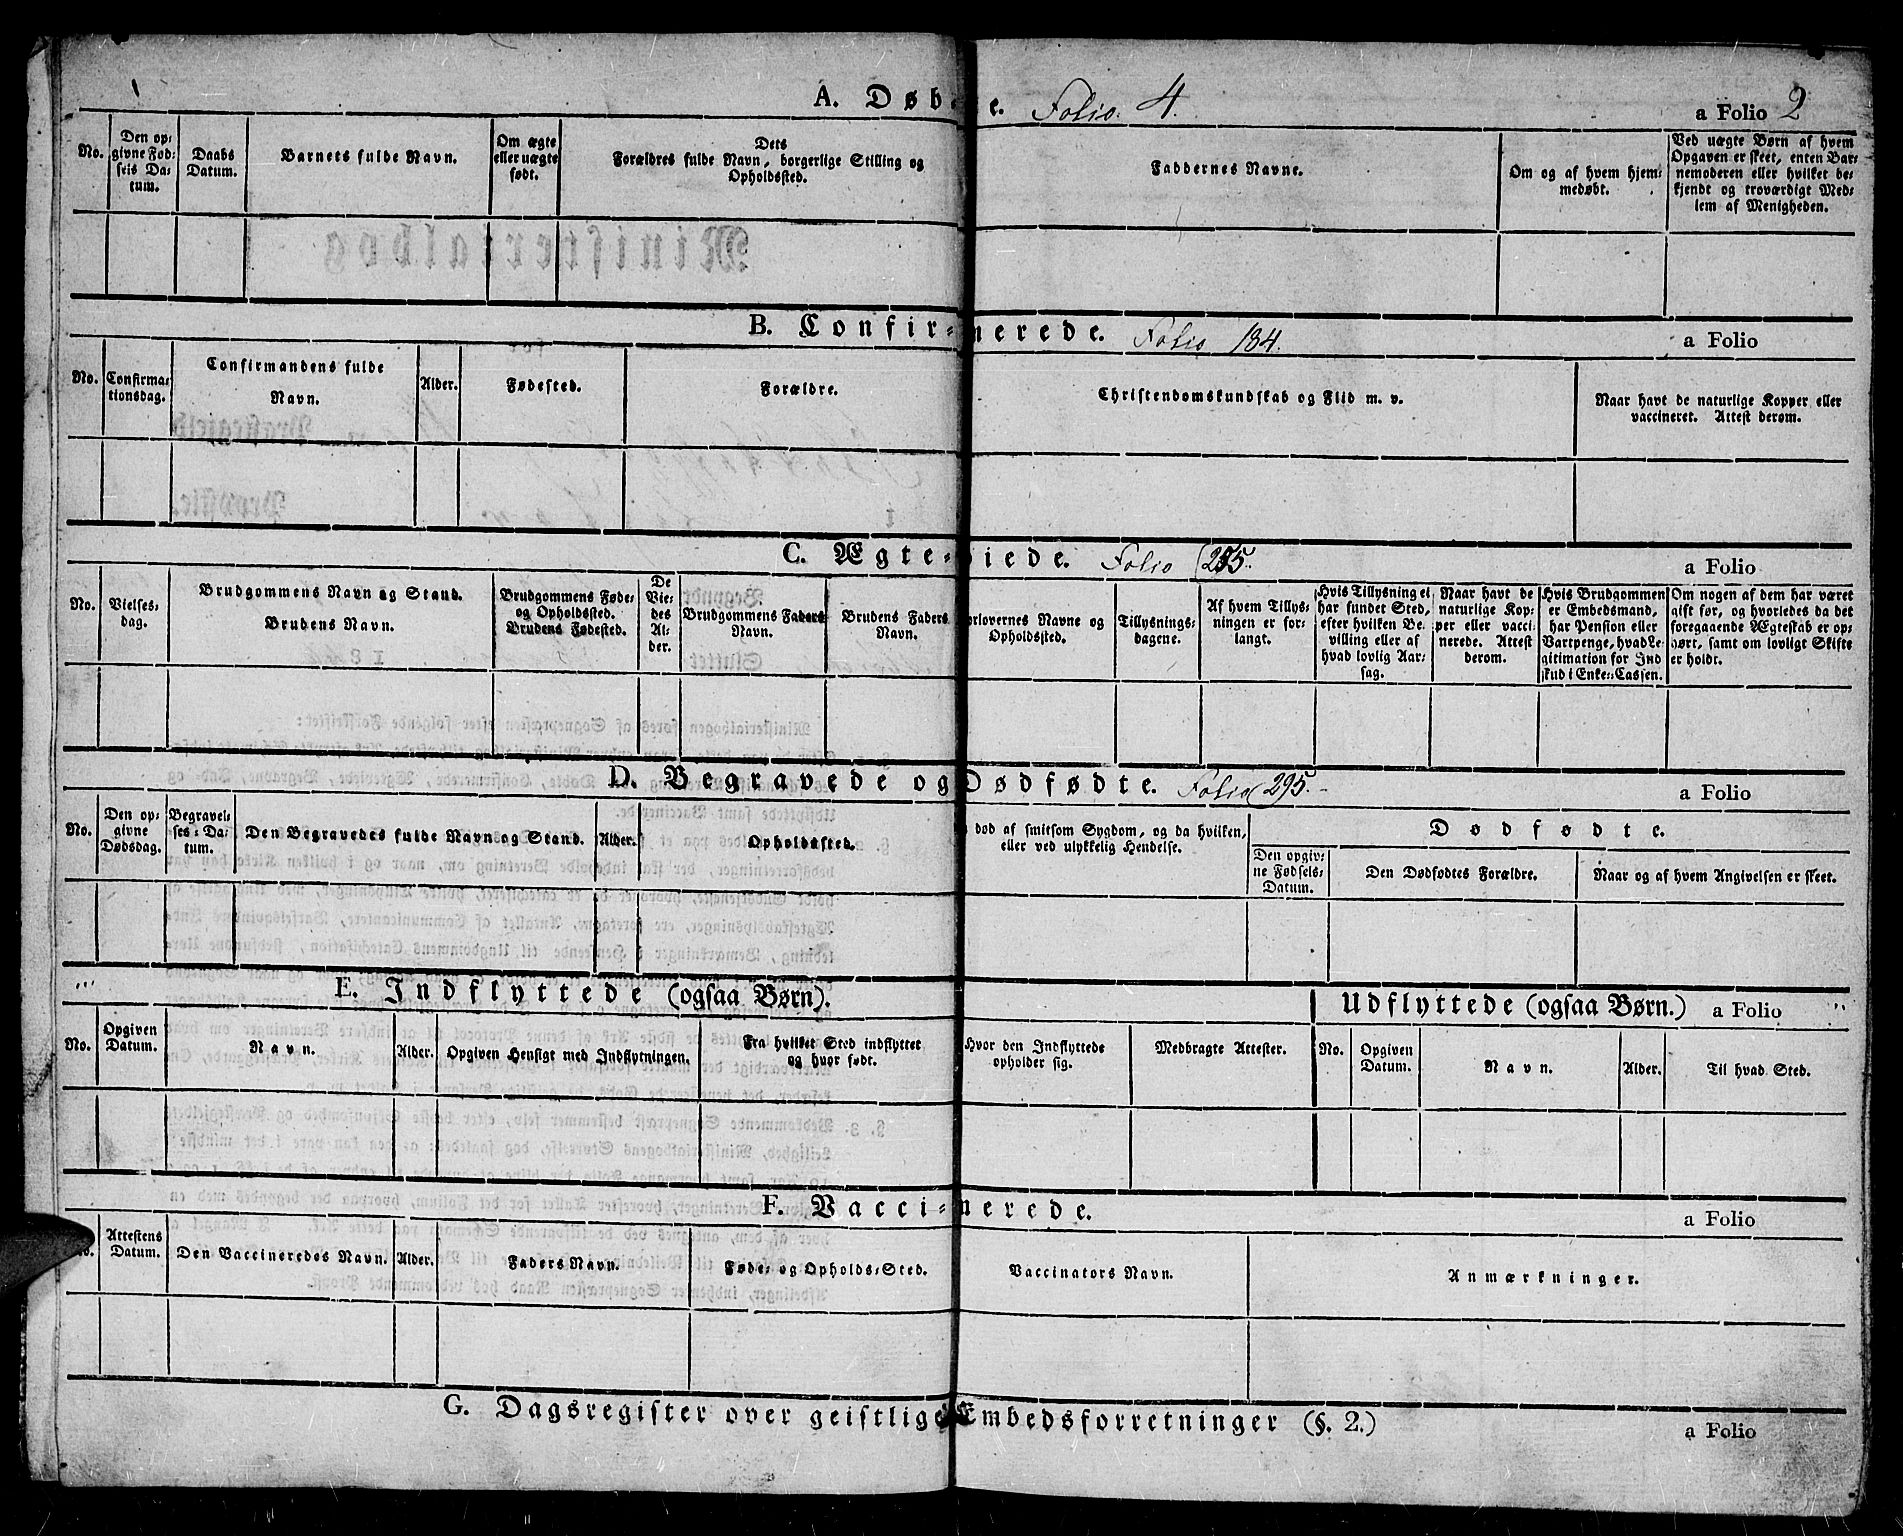 A. Døb e. Folio. 4.
a Folio 2
No.
Den op=
givne Fød=
sels Da=
tum.
Daabs
Datum.
Barnets fulde Navn.
Om ægte
eller uægte
født.
Dets
Forældres fulde Navn, borgerlige Stilling og
Opholdssted.
Faddernes Navne.
Om og af hvem hjem=
medøbt.
Ved uægte Børn af hvem
Opgaven er skeet, enten Bar=
nemoderen eller hvilket be=
kjendt og troværdigt Med=
lem af Menigheden.
Ministerialbog
B. Confir= merede. Folio 184.
a Folio
No.
Confirma=
tionsdag.
Confirmandens fulde
Navn.
Alder.
Fødested.
Forældre.
Christendomskundskab og Flid m. v.
Naar havt de naturlige Kopper eller
vaccineret. Attest derom.
Præstegjeld
Provstie.
C. Ægte= viede. Folio
a Folio
No.
Vielses=
dag.
Brudgommens Navn og Stand.
Brudens Navn.
Brudgommens Føde=
og Opholdssted.
Brudens Fødested.
De
Vie=
des
Al=
der.
Brudgommens Faders
Navn.
Brudens Faders
Navn.
orlovernes Navne og
Opholdssted.
Tillysnings=
dagene.
Af hvem Tillys=
ningen er for=
langt.
Hvis Tillysning ei
har fundet Sted,
efter hvilken Be=
villing eller af
hvad lovlig Aar=
sag.
Naar havt de
naturlige Kop=
per eller vacci=
nerede. Attest
derom.
Hvis Brudgommen
er Embedsmand,
har Pension eller
Vartpenge, hvad Le=
gitimation for Ind
skud i Enke=Cassen.
Om nogen af dem har været
gift før, og hvorledes da det
foregaaende Ægteskab er op=
hørt, samt om lovligt Skifte
er holdt.
D. Begravede og Dødfødte. Folio 295.
a Folio
No.
Den op=
givne
Dødsdag.
Begravel=
ses=Da=
tum.
Den Begravedes fulde Navn og Stand.
Alder.
Opholdssted.
død af smitsom Sygdom, og da hvilken,
eller ved ulykkelig Hendelse.
Dødfødte.
Den opgiv=
ne Fødsels=
Datum.
Den Dødfødtes Forældre.
Naar og af hvem Angivelsen er skeet.
E. Indflyttede (ogsaa Børn).
Udflyttede (ogsaa Børn.) a Folio
No.
Opgiven
Datum.
Navn.
Alder.
Opgiven Hensigt med Indflytningen.
Fra hvilket Sted indflyttet
og hvor født.
Hvor den Indflyttede
opholder sig.
Medbragte Attester.
No.
Opgiven
Datum.
Navn.
Alder.
Til hvad Sted.
F. Vacci= nerede.
a Folio
Attestens
Datum.
Den Vaccineredes Navn.
Alder.
Faders Navn.
Føde= og Opholds=Sted.
Vaccinators Navn.
Anmærkninger.
G. Dagsregister over geistlige Embedsforretninger (§. 2.)
a Folio